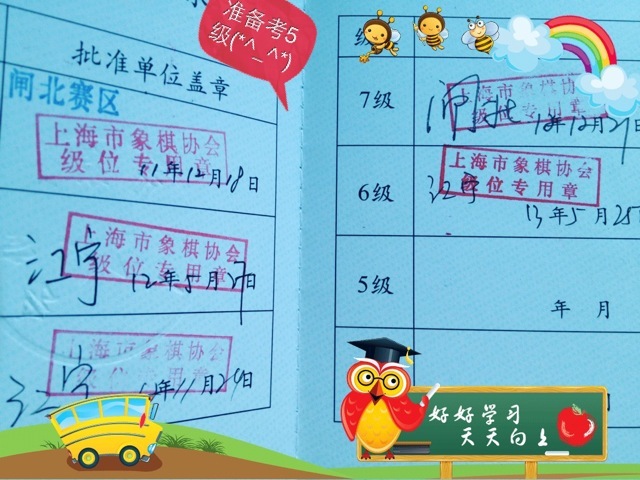 准备考5
级(*^_^*)
批准单位盖章
闸北赛区
上海市象棋协会
级位专用章
11年12月18日
江宇
上海市象棋协会
级位专用章
12年5月27日
上海市象棋协会
级位专用章
年11月24日
级
7级
上海市象棋协会
级位专用章
12月29日
6级
上海市象棋协会
级位专用章
江宇
13年5月25
5级
年 月
好好学习
天天向上